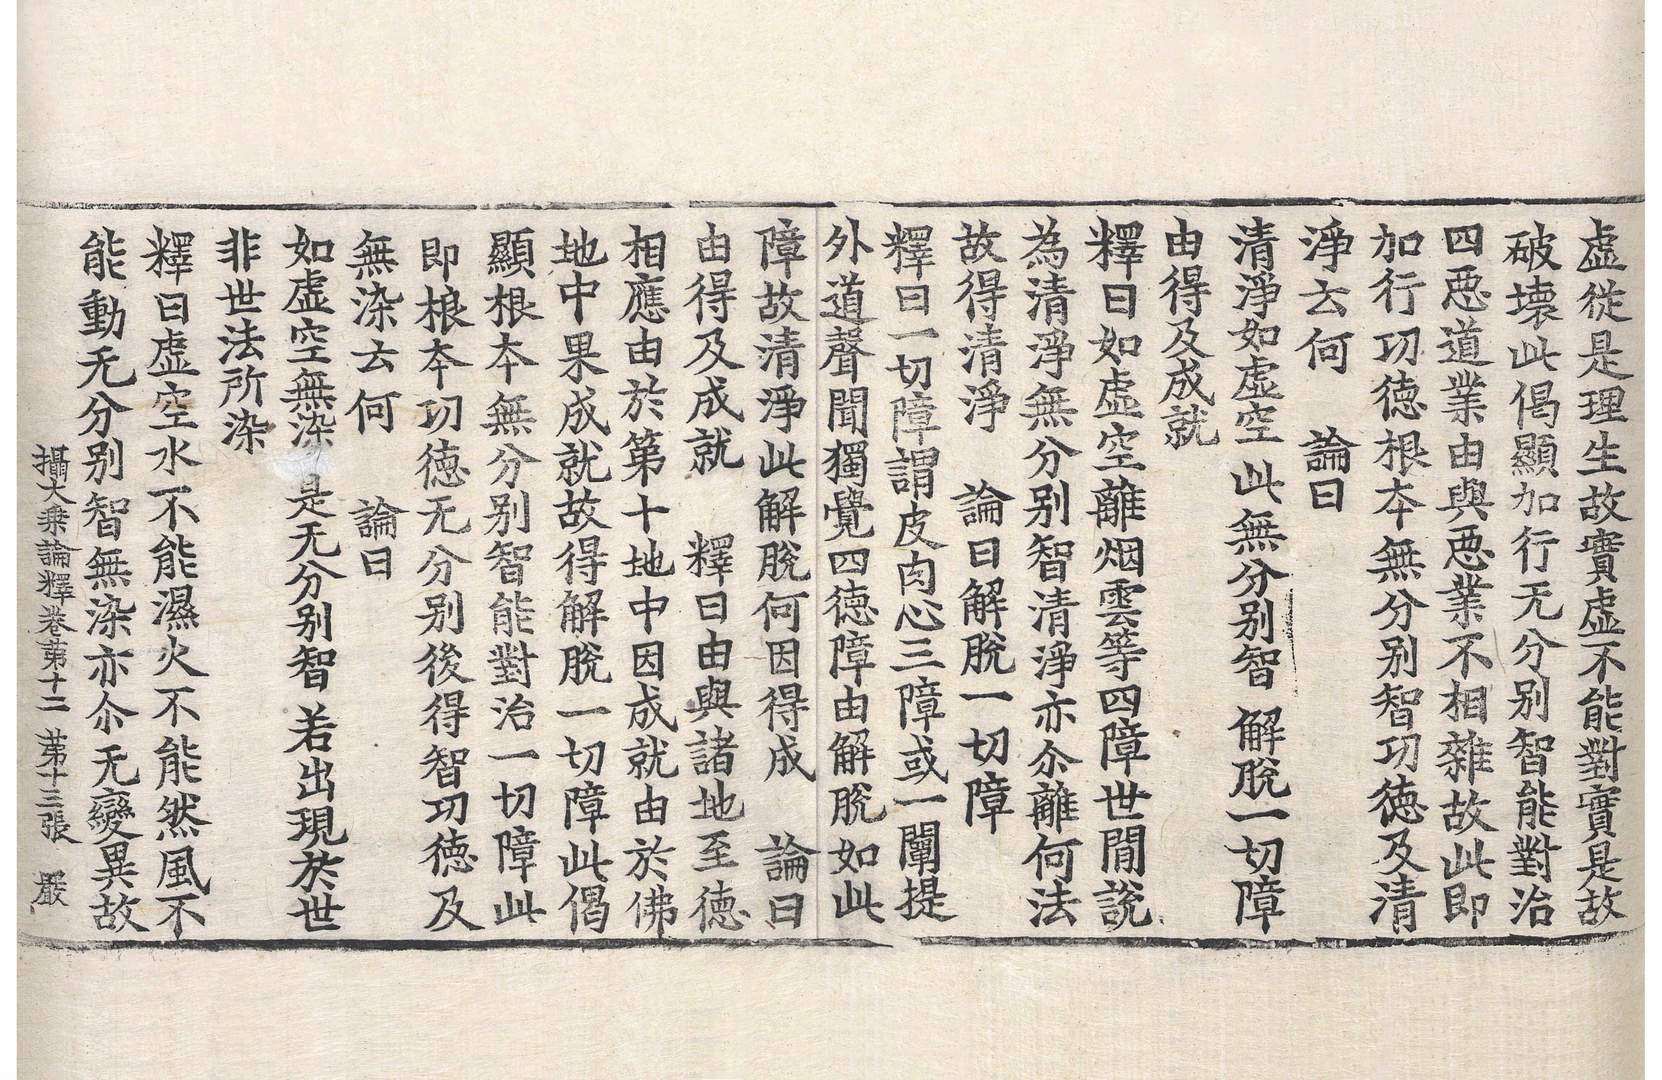 虛從是理生故實虛不能對實是故
破壞此偈顯加行无分別智能對治
四惡道業由與惡業不相雜故此即
加行功德根本無分別智功德及清
淨云何　論曰
清淨如虛空　此無分別智　解脫一切障
由得及成就
釋曰如虛空離烟雲等四障世閒說
為清淨無分別智清淨亦尒離何法
故得清淨　論曰解脫一切障
釋曰一切障謂皮肉心三障或一闡提
外道聲聞獨覺四德障由解脫如此
障故清淨此解脫何因得成　論曰
由得及成就　釋曰由與諸地至德
相應由於第十地中因成就由於佛
地中果成就故得解脫一切障此偈
顯根本無分別智能對治一切障此
即根本功德无分別後得智功德及
無染云何　論曰
如虛空無染　是无分別智　若出現於世
非世法所染
釋曰虛空水不能濕火不能然風不
能動无分別智無染亦尒无變異故
攝大乘論釋卷第十二　第十三張　嚴